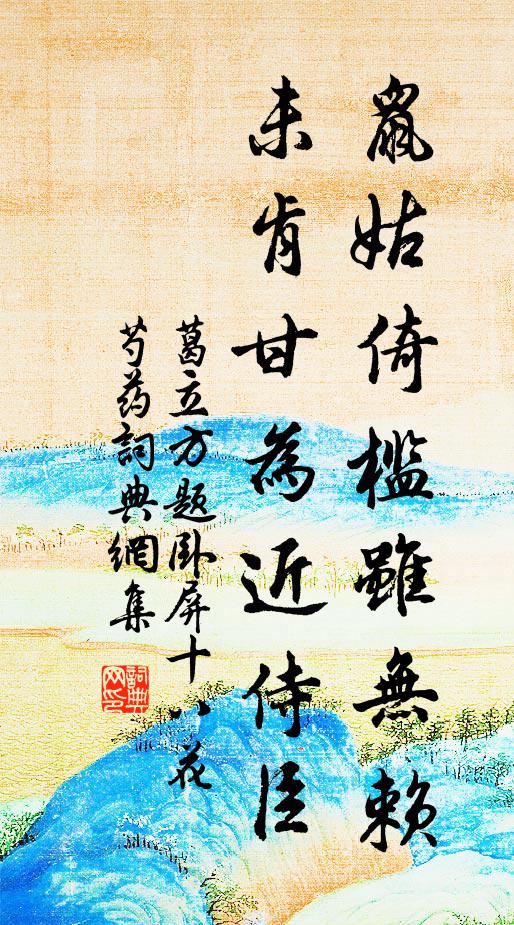 鼠姑倚檻雖無賴
未肯甘為近侍臣
葛立方题卧屏十八花
芍药詞典網集
詞典网印